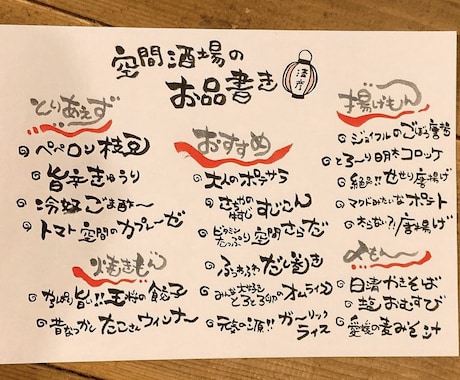 空間酒場の
お品書き
酒場
とりあえず
ペペロン枝豆
旨辛きゅうり
冷奴ごま酢〜
トマト空間のカプレーゼ
焼きもん
旨い!!王様の餃子
昔なつかしたこさんウィンナー
おすすめ
大人のポテサラ
ビタミンたっぷり空間さらだ
ふわふわだし巻き
みんな大好きとろとろ卵のオムライス
元気の源!!ガーリックライス
揚げもん
ジョイフルのごぼう唐揚
とろ〜り明太コロッケ
絶品!!せせり唐揚げ
マクドみたいなポテト
唐揚げ
〆もん〜
日清やきそば
塩おむすび
愛媛の麦みそ汁